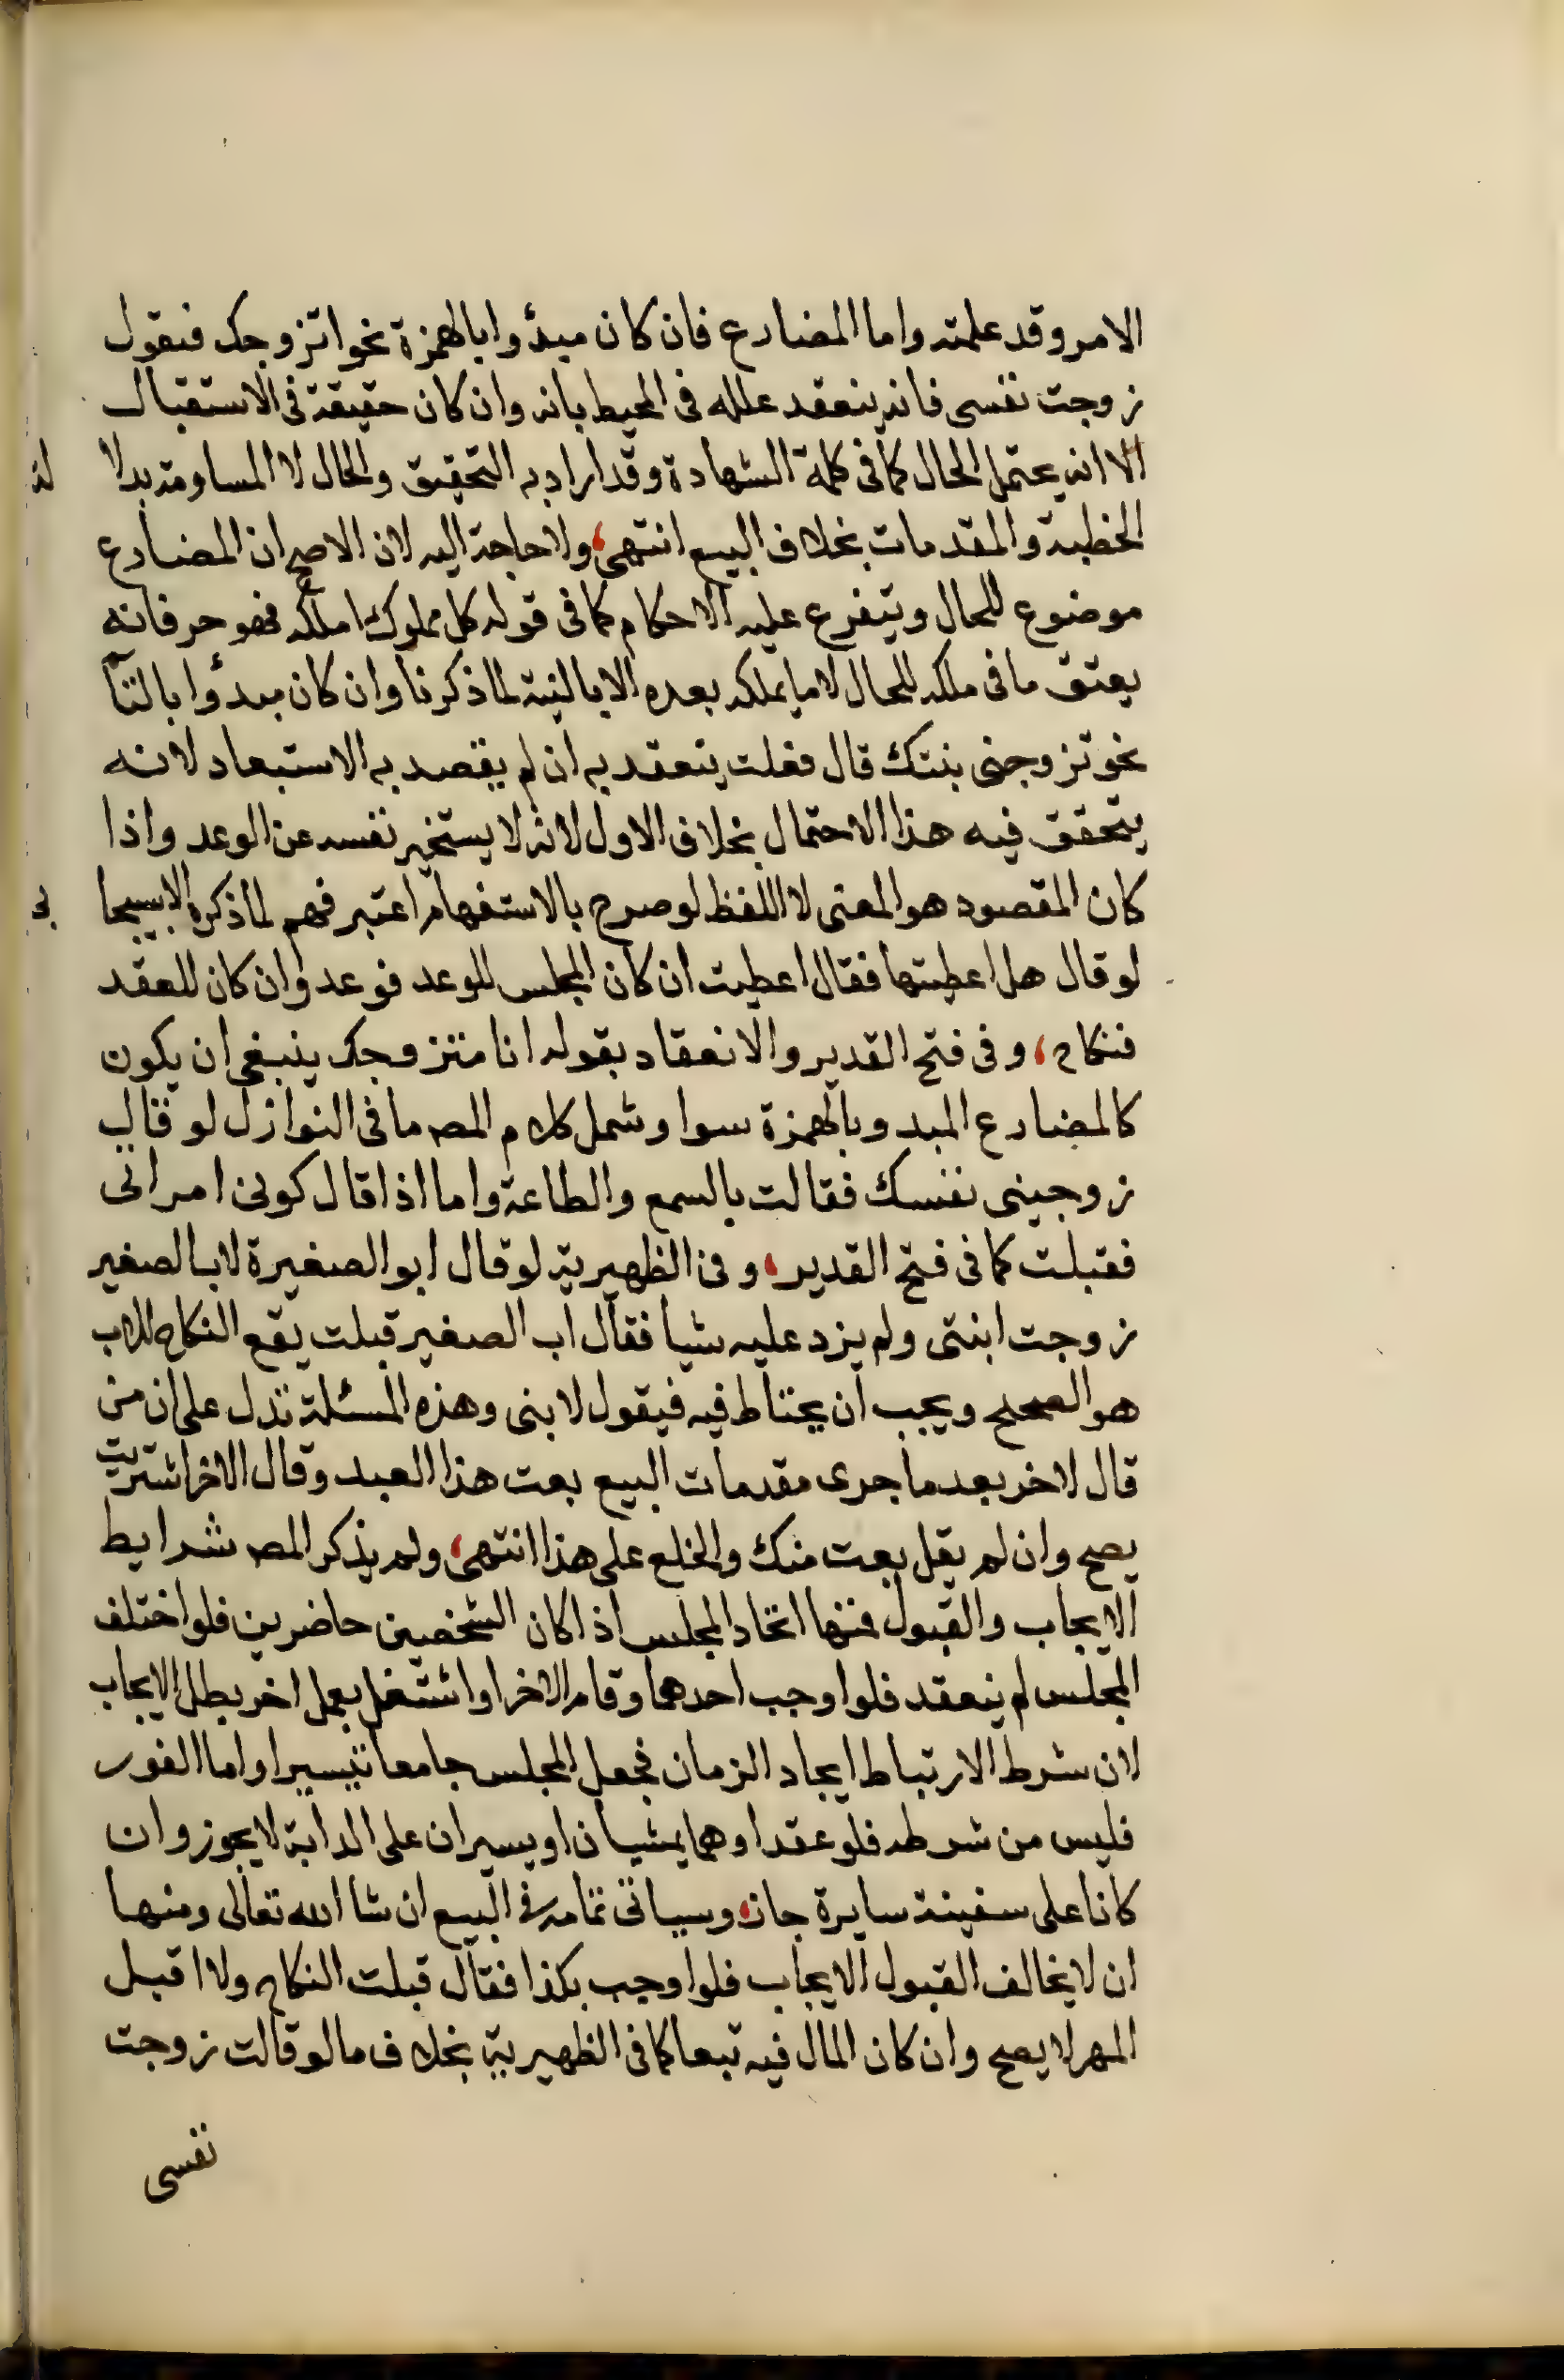 الامر وقد علمته واما المضارع فان كان مبدؤا بالهمزة نحو اتزوجك فيقول
زوجت نفسى فانه ينعقد علله فى المحيط بانه وان كان حقيقة فى الاستقبال
الا انه يحتمل الحال كما فى كلمة الشهادة وقد اراد به التحقيق والحال لا المساومة بدلالة
الخطبة والمقدمات بخلاف البيع انتهى، ولا حاجة اليه لان الاصح ان المضارع
موضوع للحال ويتفرع عليه الاحكام كما فى قوله كل مملوك املكه فهو حر فانه
يعتق ما فى ملكه للحال لا ما يملكه بعده الا بالنية لما ذكرنا وان كان مبدؤا بالتآ
نحو تزوجنى بنتك قال فعلت ينعقد به ان لم يقصد به الاستبعاد لانه
يتحقق فيه هذا الاحتمال بخلاف الاول لانه لا يستخبر نفسه عن الوعد واذا
كان المقصود هو المعنى لا اللفظ لو صرح بالاستفهام اعتبر فهم لما ذكره الاسبيجابى
لو قال هل اعطيتها فقال اعطيت ان كان المجلس للوعد فوعد وان كان للعقد
فنكاح، وفى فتح القدير والانعقاد بقوله انا متزوجك ينبغى ان يكون
كالمضارع المبدو بالهمزة سوا وشمل كلام المص ما فى النوازل لو قال
زوجينى نفسك فقالت بالسمع والطاعة واما اذا قال كونى امراتى
فقبلت كما فى فتح القدير، وفى الظهيرية لو قال ابو الصغيرة لاب الصغير
زوجت ابنتى ولم يزد عليه شيا فقال اب الصغير قبلت يقع النكاح للاب
هو الصحيح ويجب ان يحتاط فيه فيقول لابنى وهذه المسئلة تدل على ان من
قال لاخر بعد ما جرى مقدمات البيع بعت هذا العبد وقال الاخر اشتريت
يصح وان لم يقل بعت منك والخلع على هذا انتهى، ولم يذكر المص شرايط
الايجاب والقبول فمنها اتحاد المجلس اذا كان الشخصين حاضرين فلو اختلف
المجلس لم ينعقد فلو اوجب احدهما وقام الاخر او اشتغل بعمل اخر بطل الايجاب
لان شرط الارتباط ايجاد الزمان فجعل المجلس جامعا تيسيرا واما الفور
فليس من شرطه فلو عقدا وهما يمشيان او يسيران على الدابة لا يجوز وان
كانا على سفينة سايرة جاز، وسياتى تمامه فى البيع ان شا الله تعالى ومنها
ان لا يخالف القبول الايجاب فلو اوجب بكذا فقال قبلت النكاح ولا اقبل
المهر لا يصح وان كان المال فيه تبعا كما فى الظهيرية بخلاف ما لو قالت زوجت
نفسى